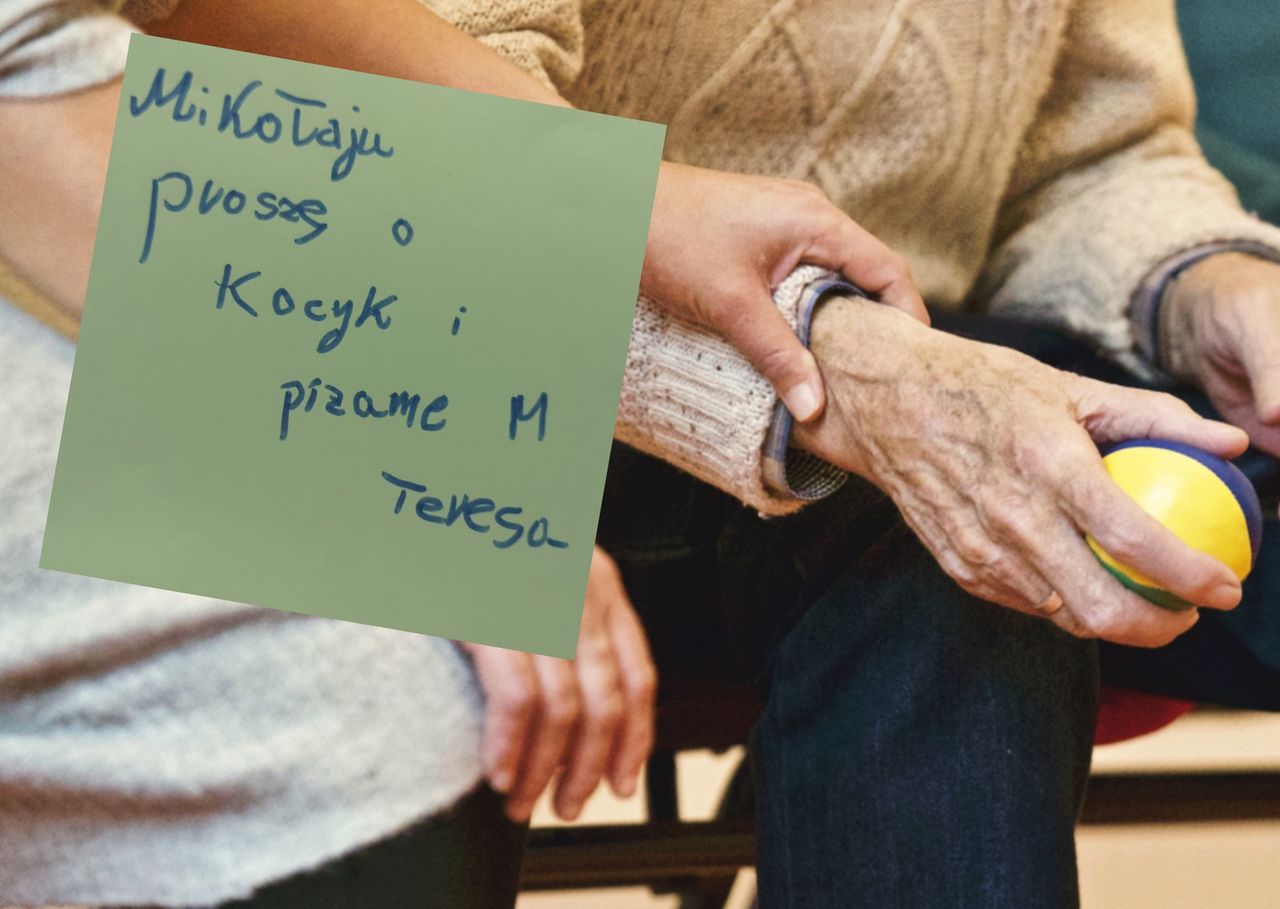 Mikołaju
proszę o
Kocyk i
pizame M
Teresa